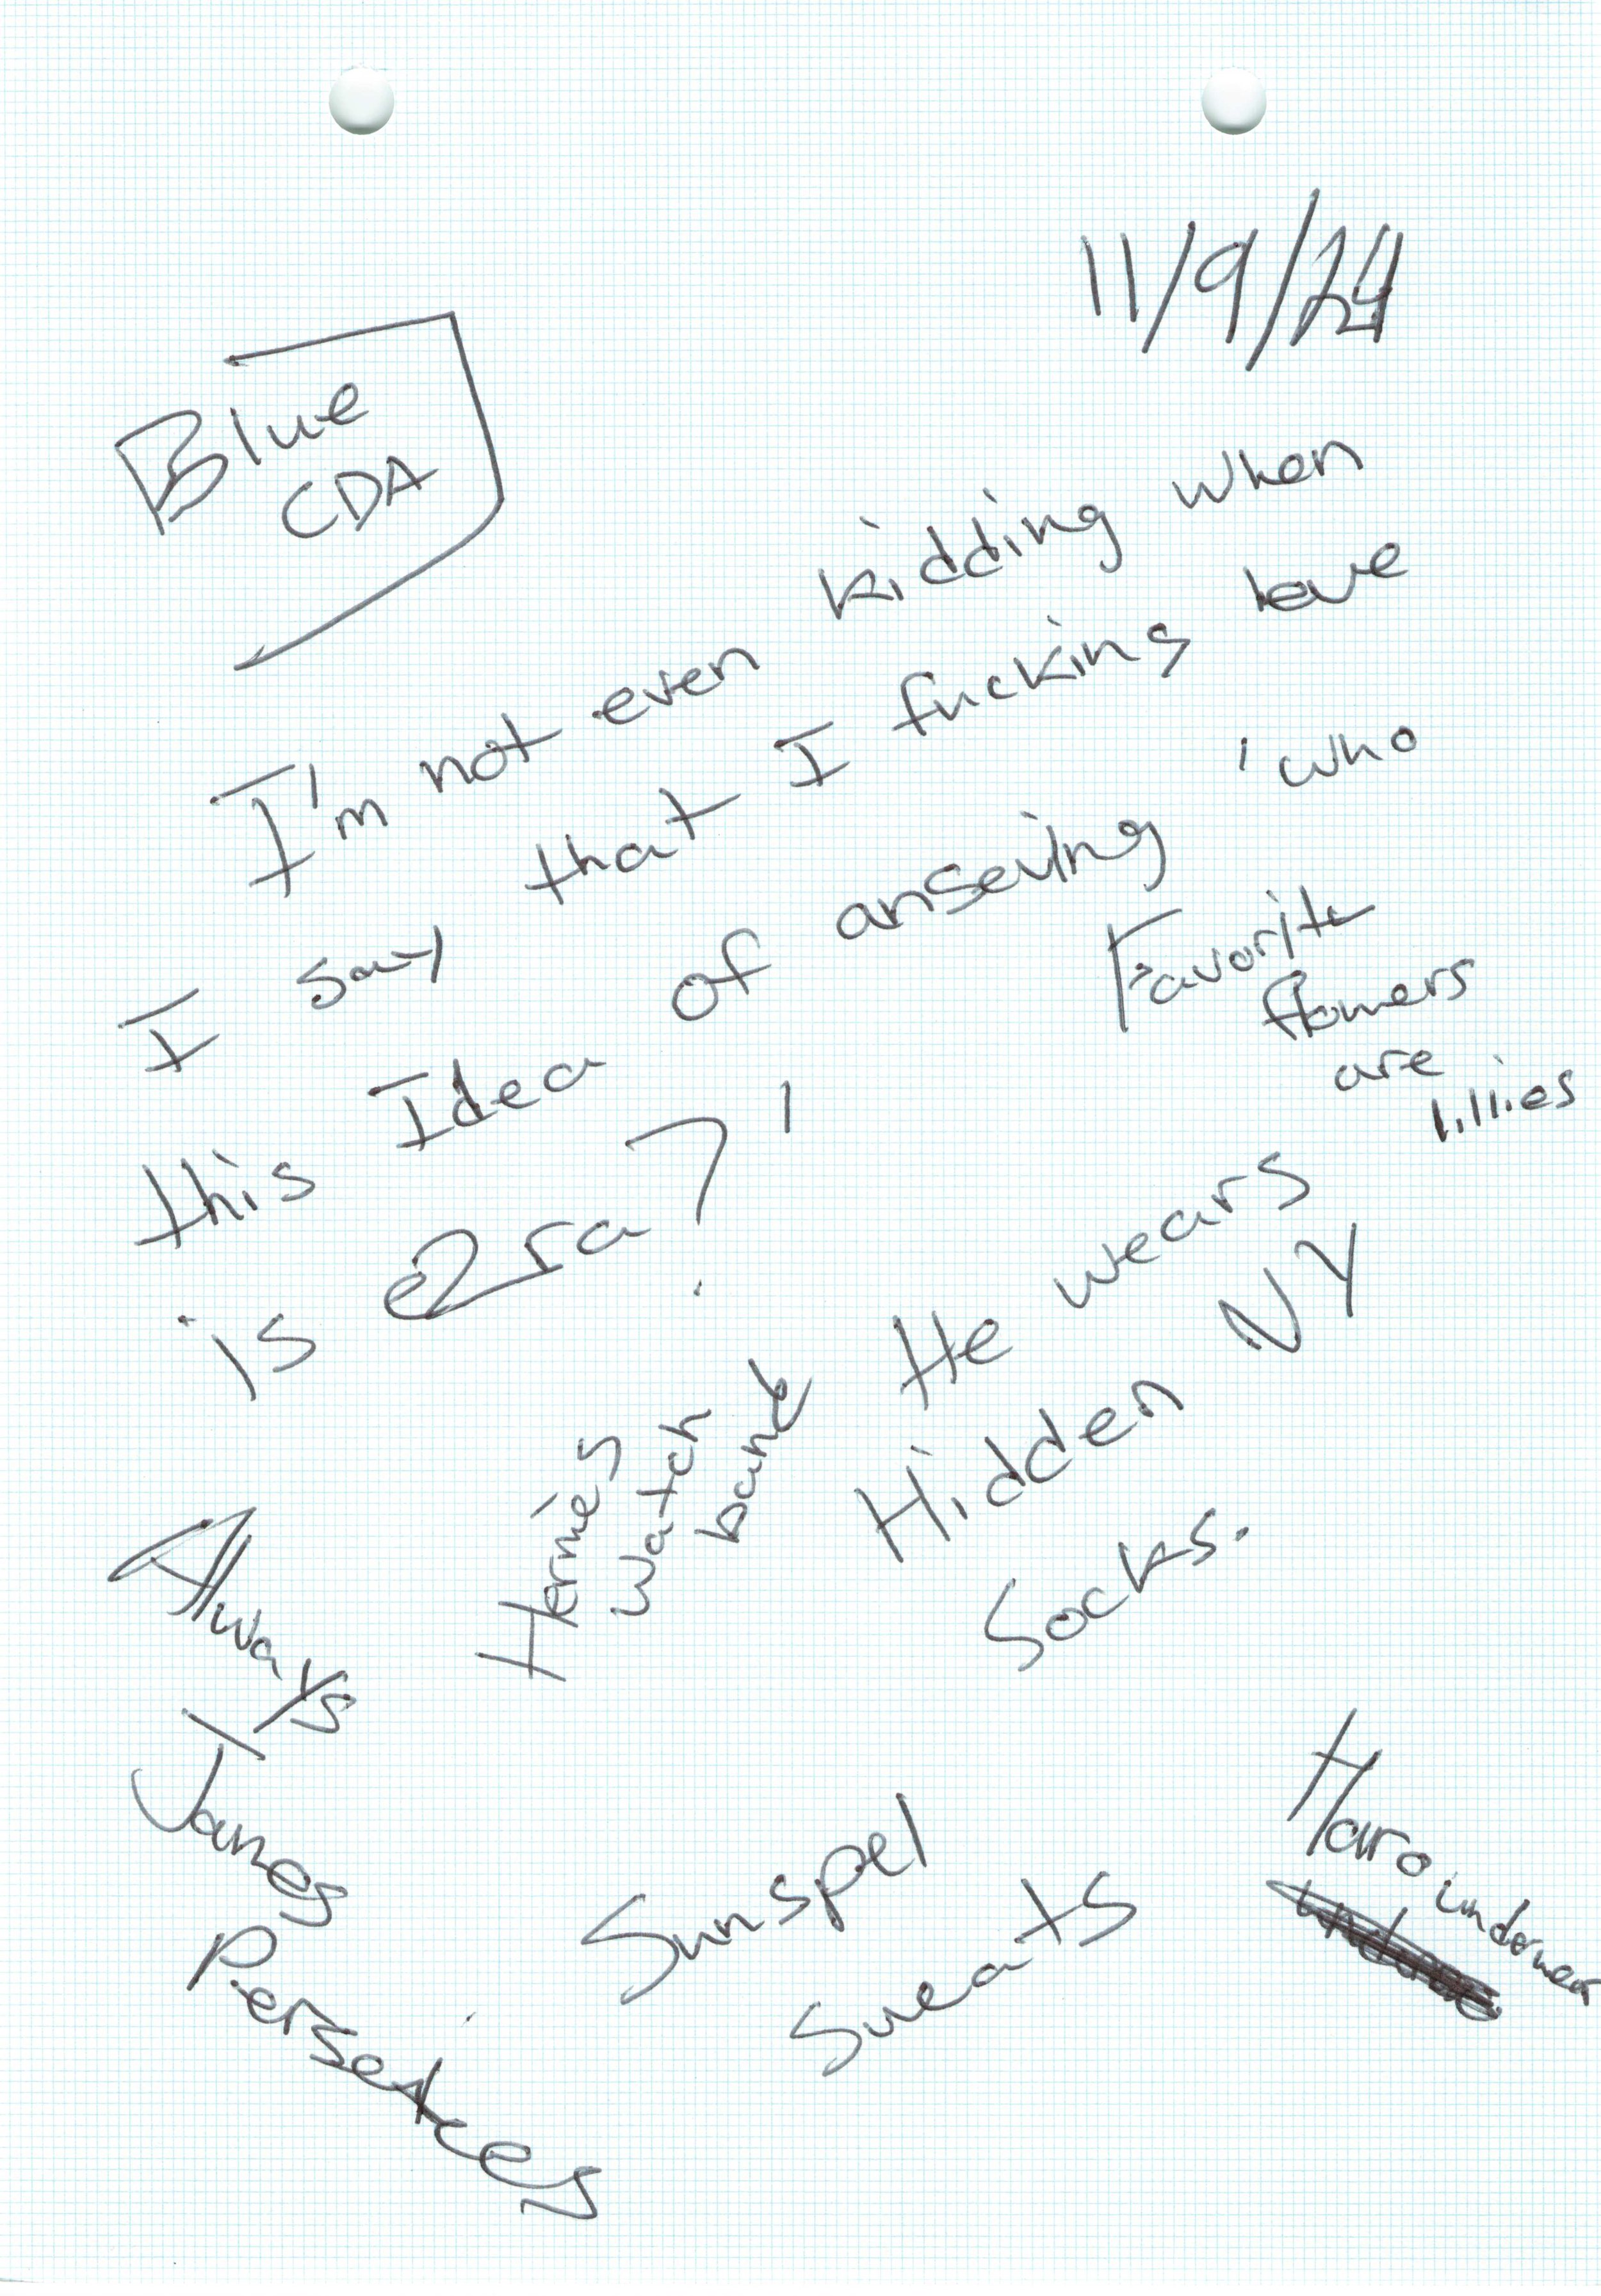 11/9/24
Blue
CDA
I'm not even kidding when
I say that I fucking love
this Idea of anseving 'who
is Ezra?'
Favorite
flowers
are
lillies
He wears
Hidden NY
Socks.
Hermés
watch
band
Always
James
Perse
Sunspel
Sweats
Haro underwear